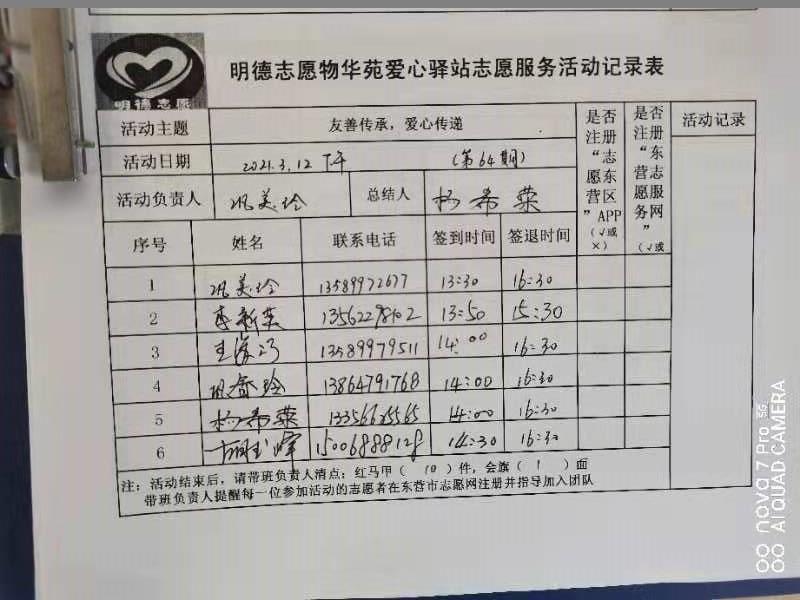 明德志愿物华苑爱心驿站志愿服务活动记录表
明德志愿
活动主题 友善传承，爱心传递 是否注册“志愿东营区”APP（√或×） 是否注册“东营志愿服务网”（√或 活动记录
活动日期 2021.3.12 下午 （第64期）
活动负责人 巩美玲 总结人 杨希荣
序号 姓名 联系电话 签到时间 签退时间
1 巩美玲 13589972677 13:30 16:30
2 李新英 13562278102 13:50 15:30
3 13589979511 14:00 16:30
4 巩香玲 13864791768 14:00 16:30
5 杨希荣 13356625565 14:00 16:30
6 15006888128 14:30 16:30
注：活动结束后，请带班负责人清点：红马甲（ 10 ）件，会旗（ 1 ）面
带班负责人提醒每一位参加活动的志愿者在东营市志愿网注册并指导加入团队
nova 7 Pro 5G
AI QUAD CAMERA